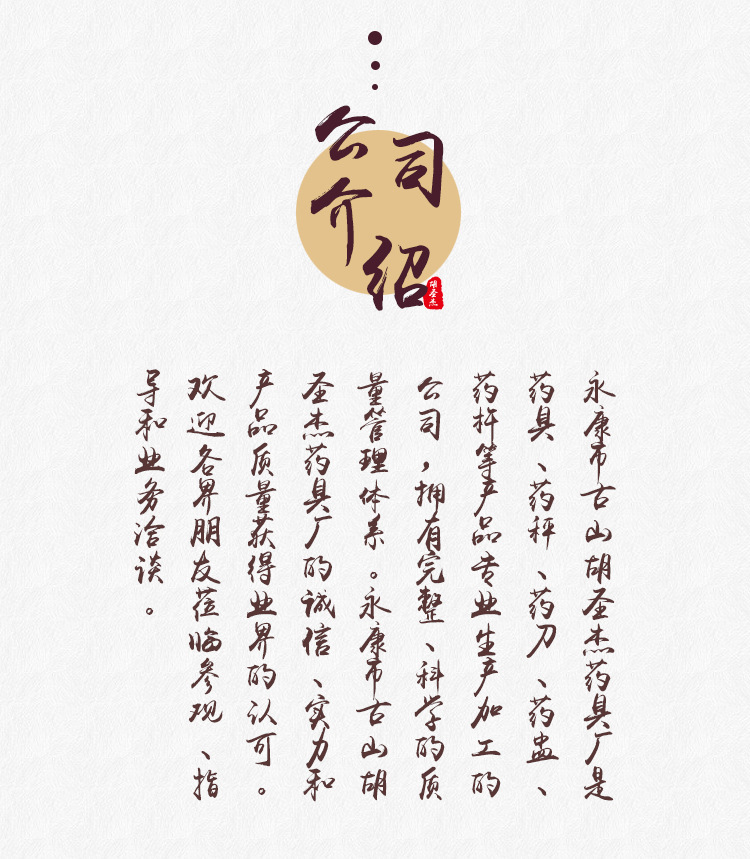 公司介绍
胡圣杰
永康市古山胡圣杰药具厂是
药具、药秤、药刀、药盅、
药杵等产品专业生产加工的
公司，拥有完整、科学的质
量管理体系。永康市古山胡
圣杰药具厂的诚信、实力和
产品质量获得业界的认可。
欢迎各界朋友莅临参观、指
导和业务洽谈。